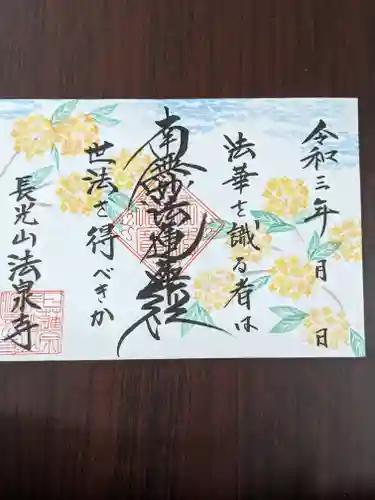 令和三年 月 日
法華を識る者は
南無妙法蓮華経
世法を得べきか
長光山 法泉寺